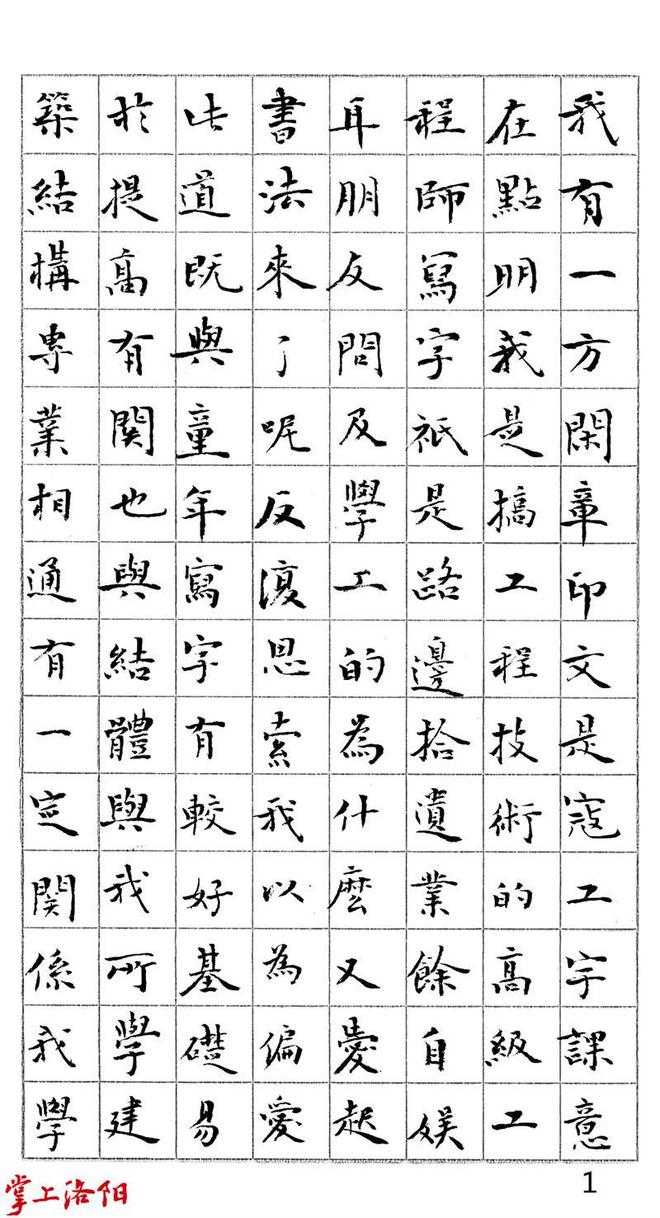 我有一方閑章印文是寇工字課意
在點明我是搞工程技術的高級工
程師寫字祇是路邊拾遺業餘自娛
耳朋友問及學工的為什麼又愛起
書法來了呢反復思索我以為偏愛
此道既與童年寫字有較好基礎易
於提高有関也與結體與我所學建
築結構專業相通有一定関係我學
掌上洛阳
1